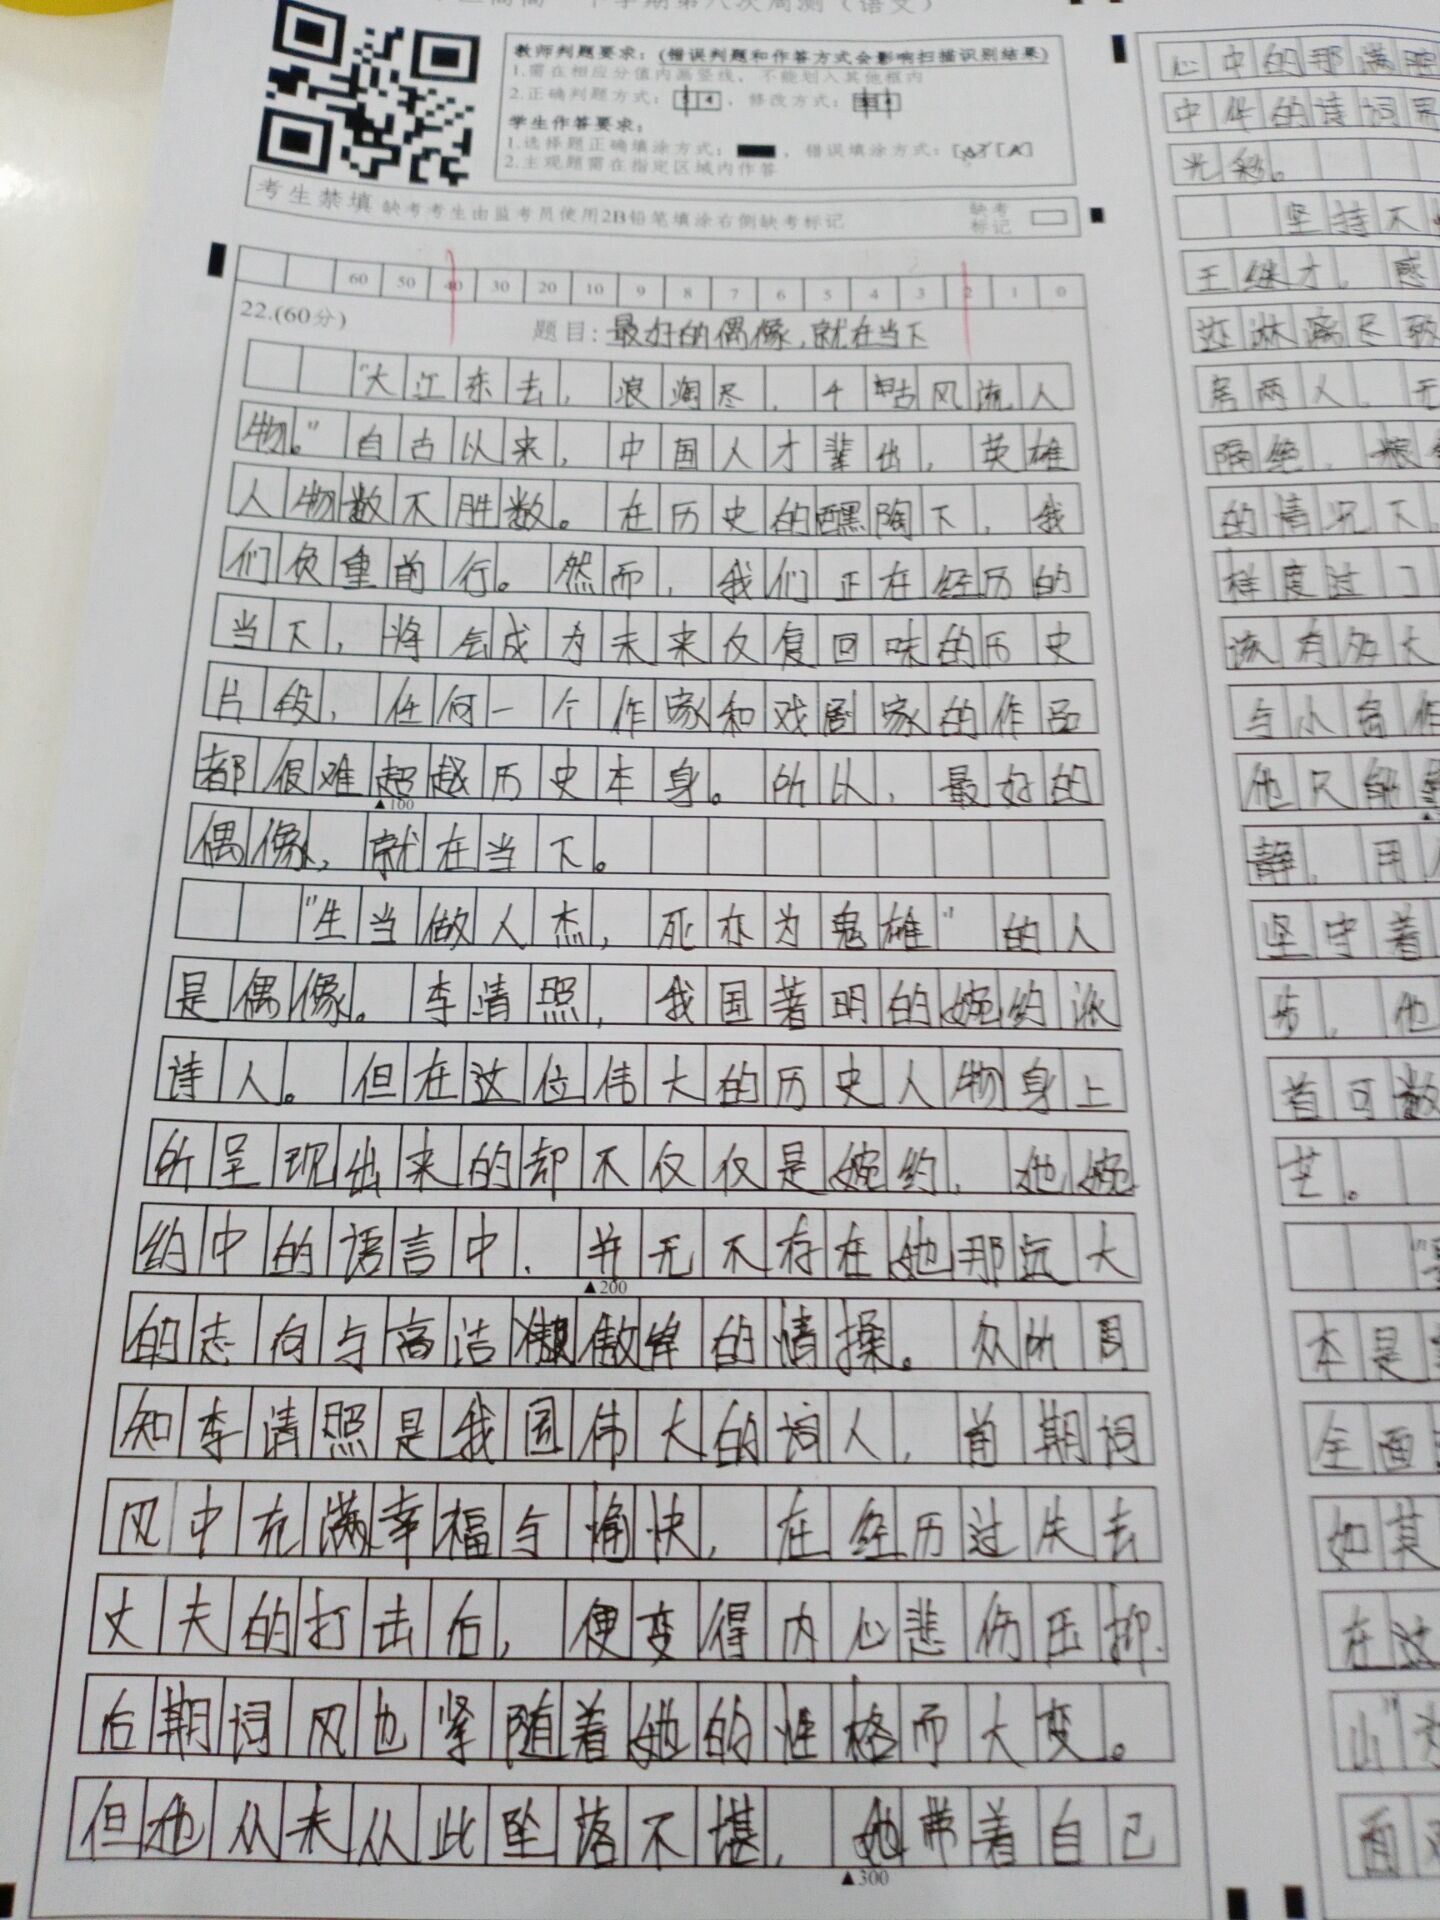 下学期第八次周测（语文）
教师判题要求：(错误判题和作答方式会影响扫描识别结果)
1.需在相应分值内画竖线，不能划入其他框内
2.正确判题方式： ，修改方式：
学生作答要求：
1.选择题正确填涂方式： ，错误填涂方式：
2.主观题需在指定区域内作答
考生禁填 缺考考生由监考员使用2B铅笔填涂右侧缺考标记
缺考
标记
60 50 40 30 20 10 9 8 7 6 5 4 3 2 1 0
22.(60分)
题目：最好的偶像，就在当下
"大江东去，浪淘尽，千古风流人
物。"自古以来，中国人才辈出，英雄
人物数不胜数。在历史的 陶下，我
们负重前行。然而，我们正在经历的
当下，将会成为未来反复回味的历史
片段，任何一个作家和戏剧家的作品
都很难超越历史本身。所以，最好的
▲100
偶像，就在当下。
"生当做人杰，死亦为鬼雄"的人
是偶像。李清照，我国著明的婉约派
诗人。但在这位伟大的历史人物身上
所呈现出来的却不仅仅是婉约，她婉
约中的语言中，并无不存在她那远大
▲200
的志向与高洁傲岸的情操。众所周
知李清照是我国伟大的词人，前期词
风中充满幸福与愉快，在经历过失去
丈夫的打击后，便变得内心悲伤压抑.
后期词风也紧随着她的性格而大变。
但她从未从此坠落不堪，她带着自己
▲300
心中的那满腔
中华的诗词
光彩。
坚持不
王继才，感
迹淋漓尽致
房两人，无
隔绝，
的情况下，
样度过了
该有多大
与小岛作
他只能
静，用
坚守着
步，他
首可数
芒。
本是
全面
如其
在这
山"
面